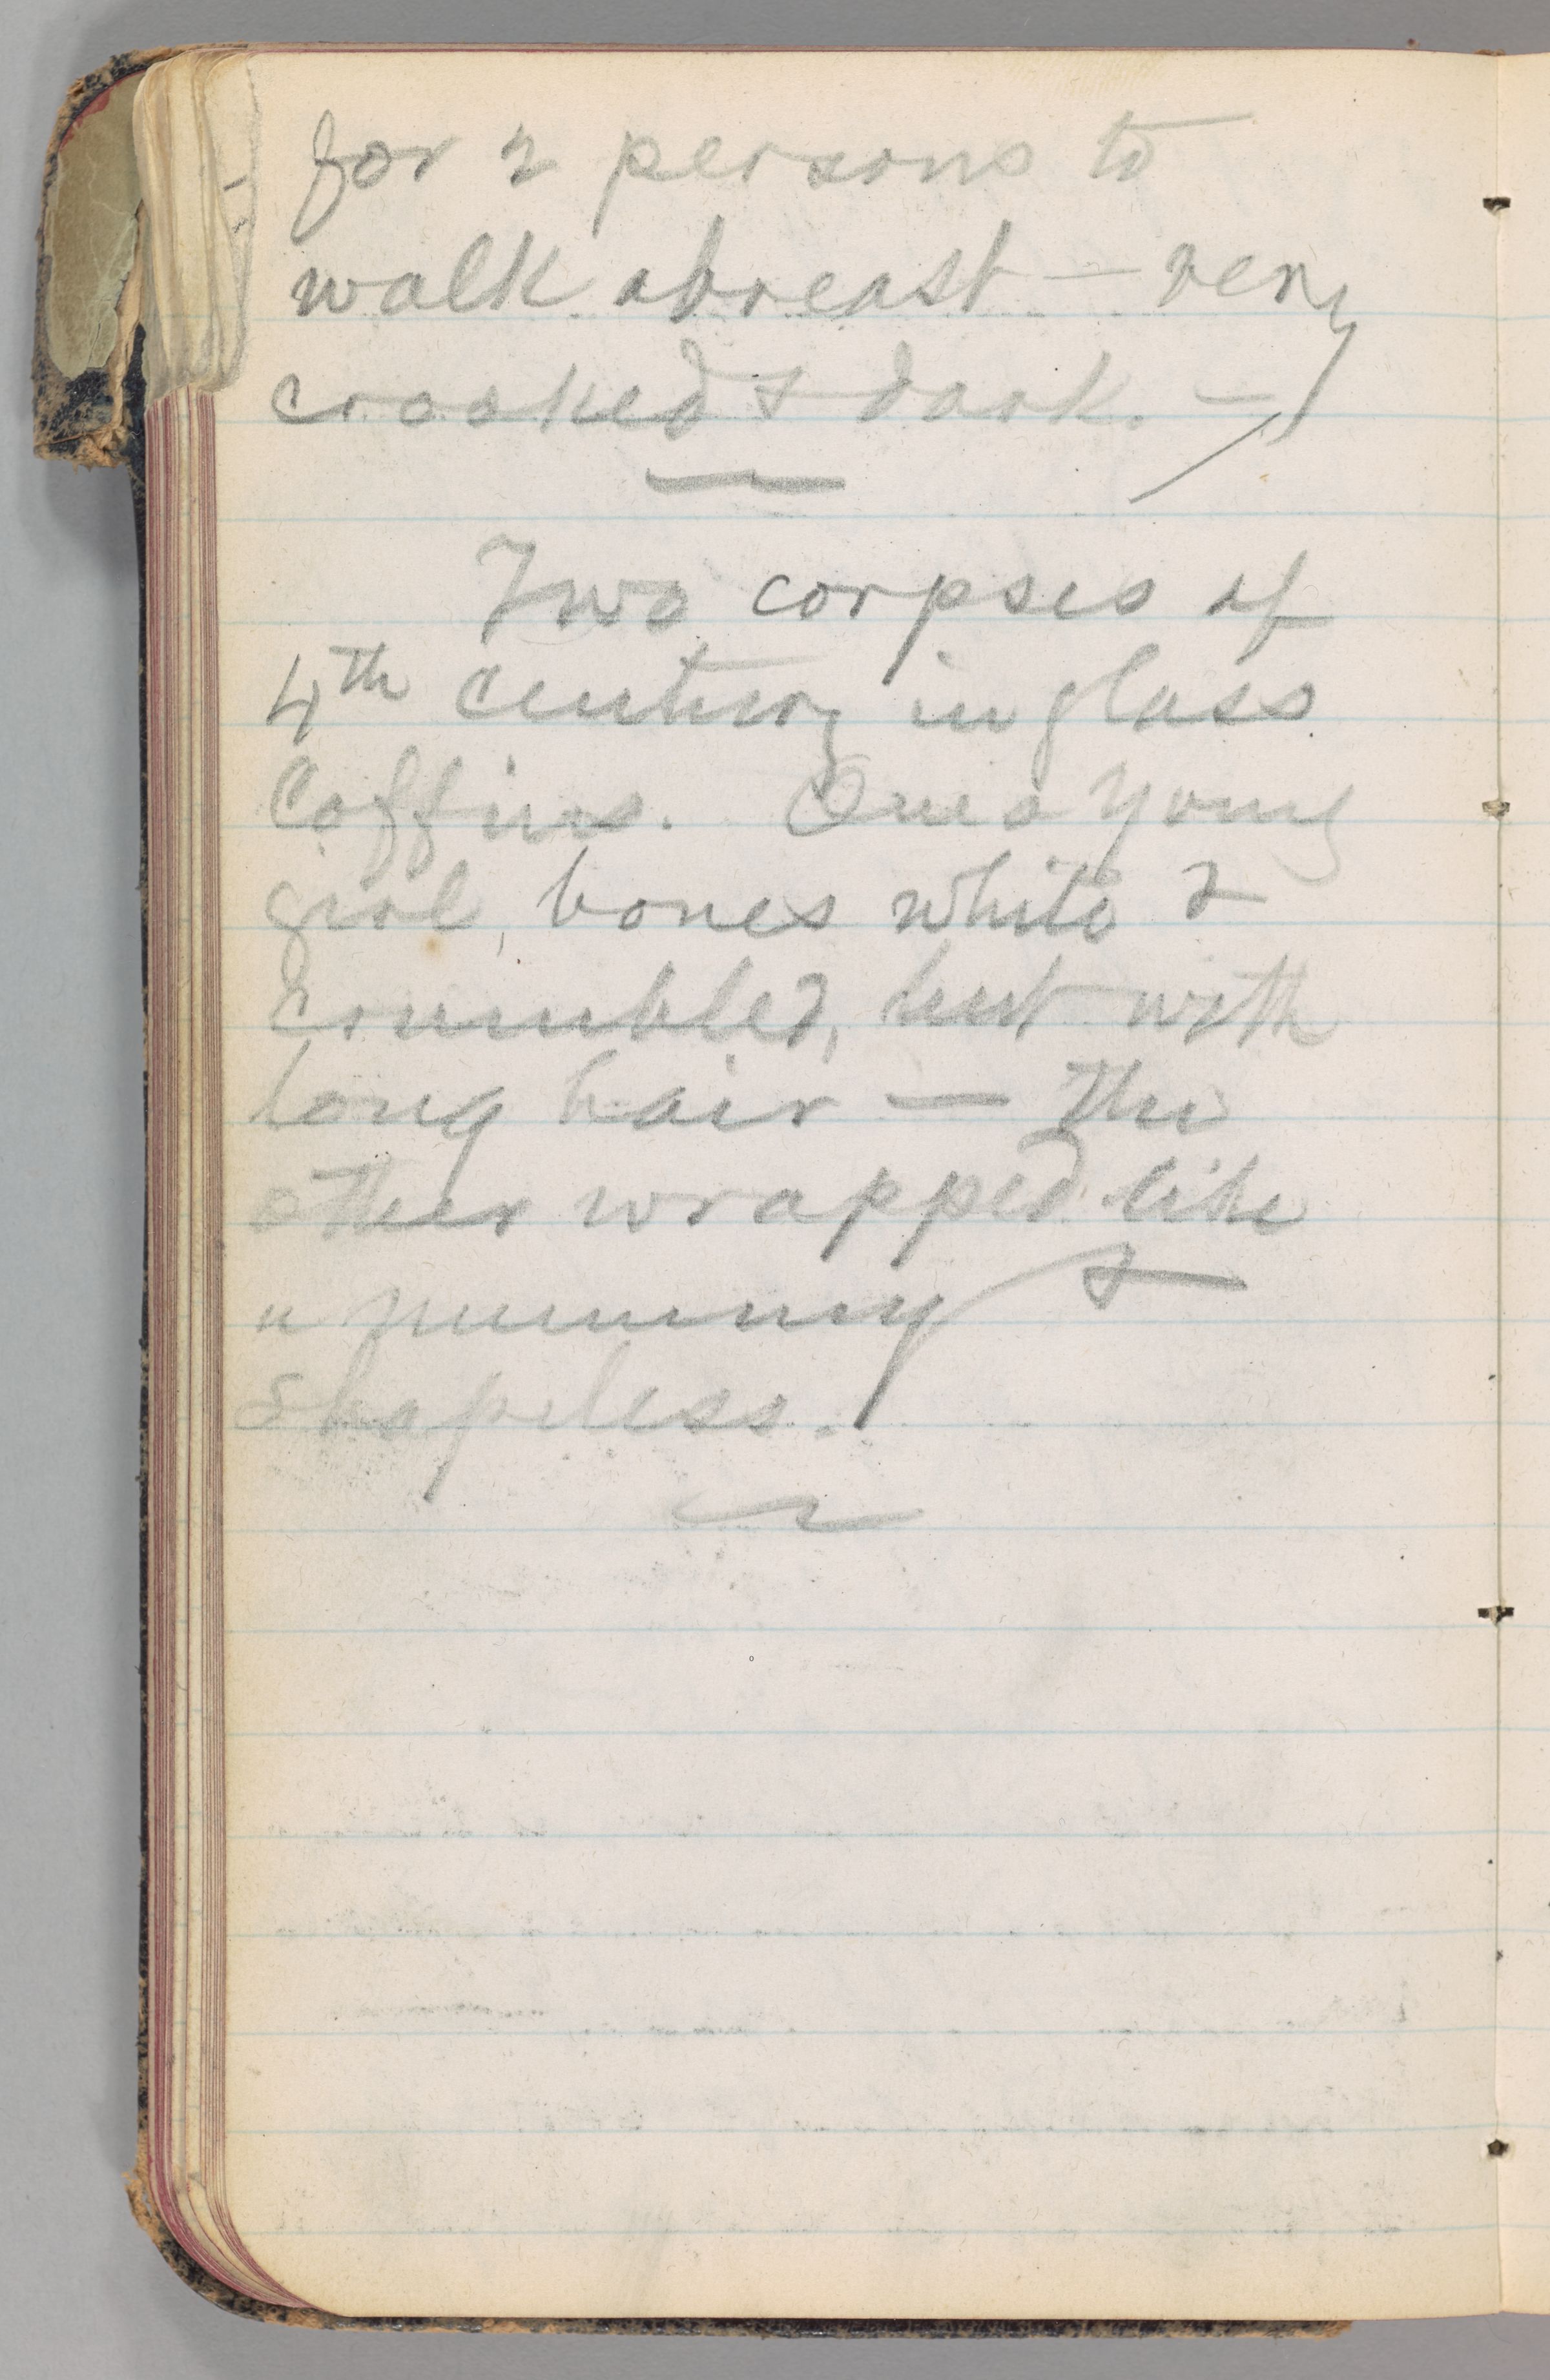 for 2 persons to
walk abreast — very
crooked & dark. —
Two corpses of
4th century in glass
Coffins. One a young
girl, bones white &
crumbled, but with
long hair — the
other wrapped like
a mummy &
shapeless.